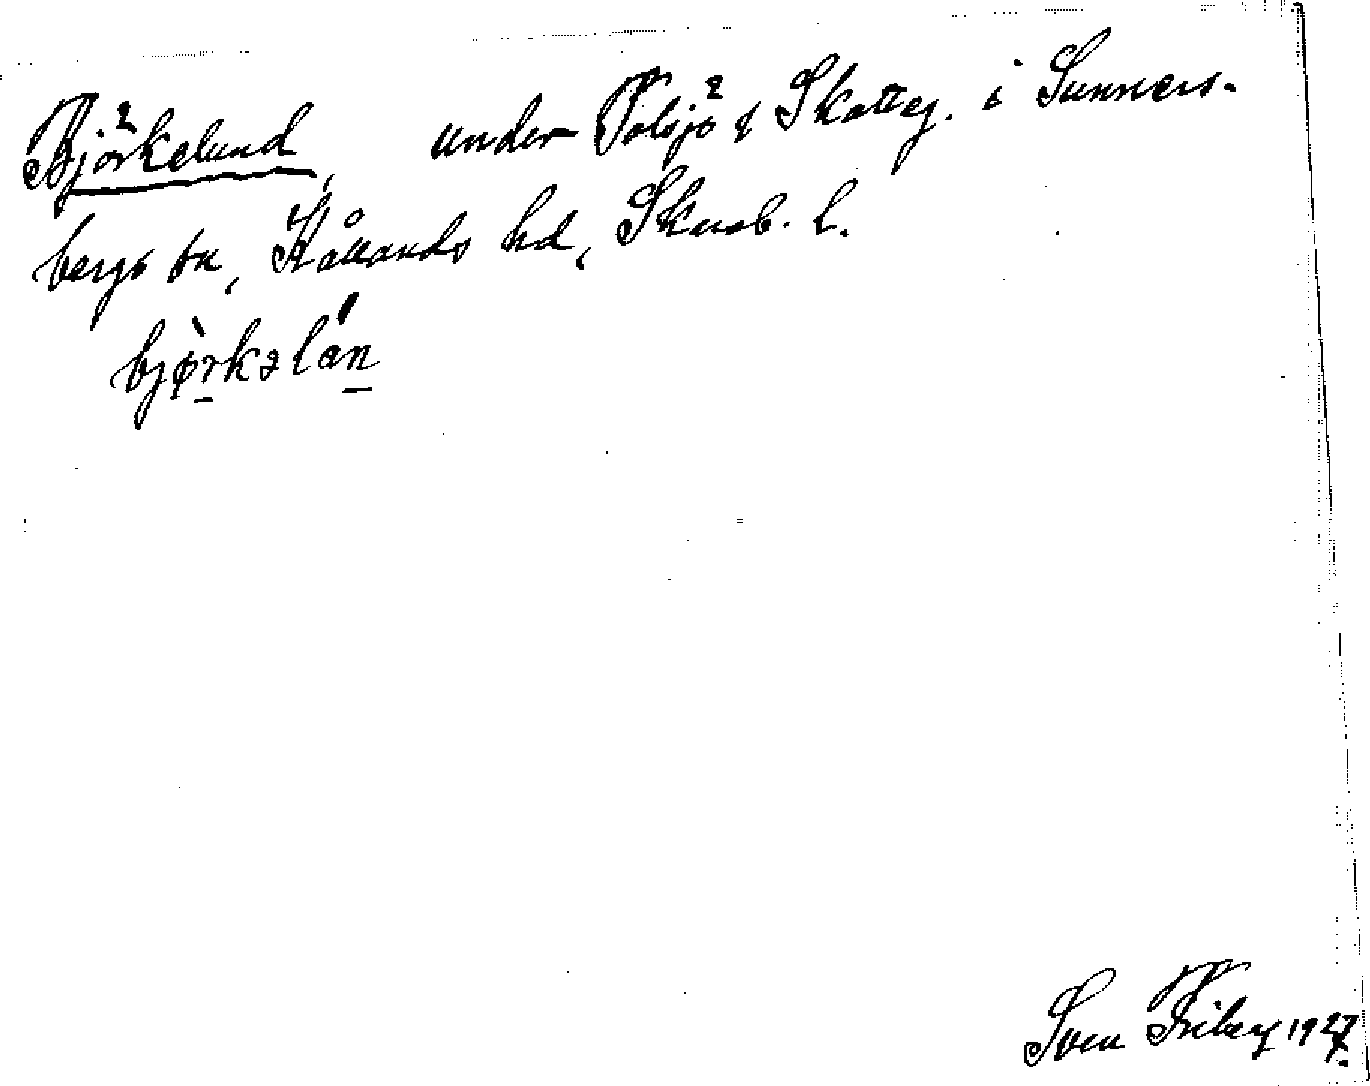 Björkelund, under Tolsjö & Skatteg. i Sunners-
bergs sn, Kållands hd, Skarab. l.
bjørkəlan
Sven Friberg 1927.